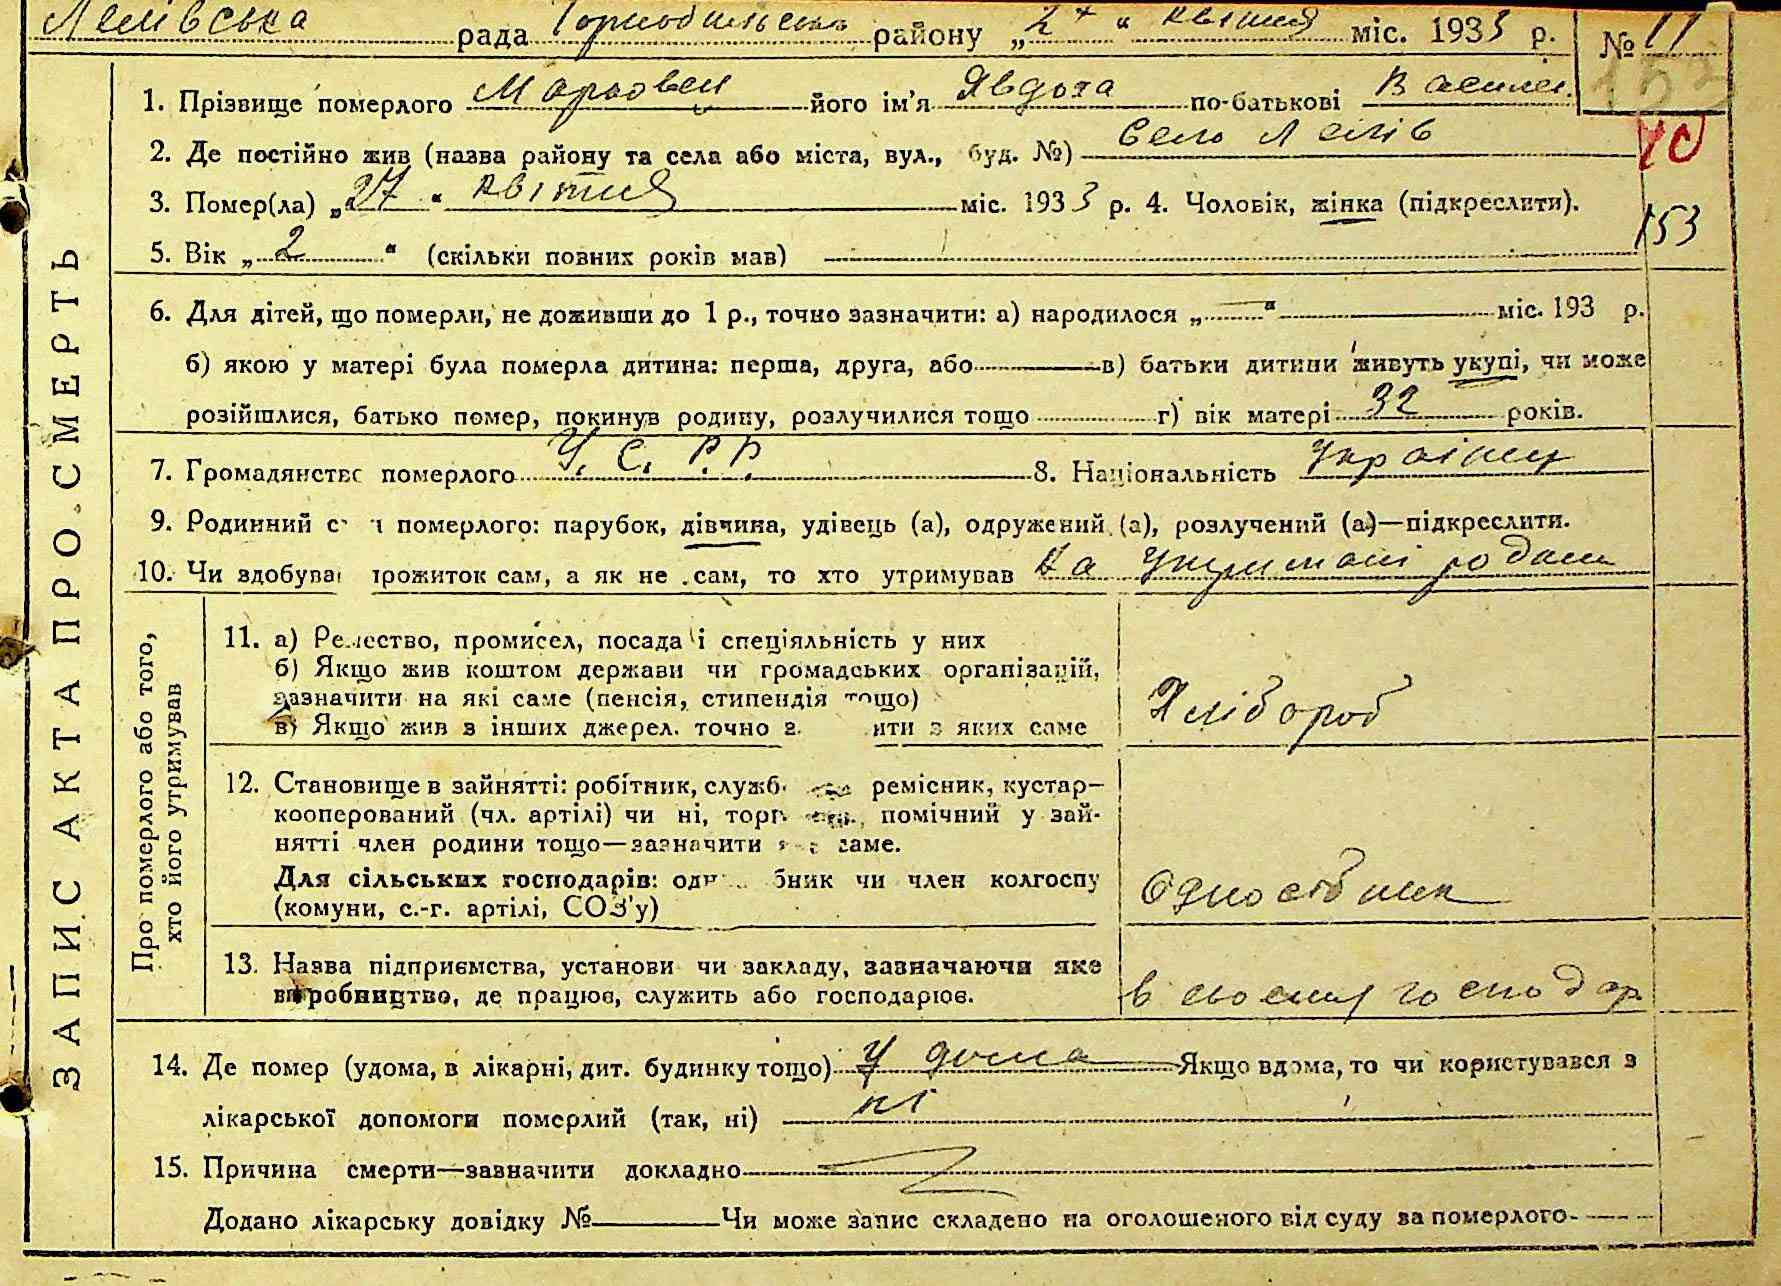 Лелівська рада Горнобильсько району „2 " квітня міс. 1933 р. № 11
1. Прізвище померлого його ім'я Явдоха по-батькові Василів.
2. Де постійно жив (назва району та села або міста, вул., буд. №) Село Лелів
3. Помер(ла) „27" квітня міс. 1933 р. 4. Чоловік, жінка (підкреслити).
153
5. Вік „2" (скільки повних років мав)
6. Для дітей, що померли, не доживши до 1 р., точно зазначити: а) народилося „—" міс. 193 р.
б) якою у матері була померла дитина: перша, друга, або — в) батьки дитини живуть укупі, чи може
розійшлися, батько помер, покинув родину, розлучилися тощо г) вік матері 32 років.
7. Громадянство померлого У. С. Р. Р. 8. Національність Українц
9. Родинний с н померлого: парубок, дівчина, удівець (а), одружений (а), розлучений (а)—підкреслити.
10. Чи здобував прожиток сам, а як не сам, то хто утримував На
ЗАПИС АКТА ПРО СМЕРТЬ
Про померлого або того,
хто його утримував
11. а) Ремество, промисел, посада і спеціяльність у них
б) Якщо жив коштом держави чи громадських організацій,
зазначити на які саме (пенсія, стипендія тощо)
в) Якщо жив з інших джерел. точно з ити з яких саме
Хлібороб
12. Становище в зайнятті: робітник, служб ремісник, кустар—
кооперований (чл. артілі) чи ні, торг помічний у зай-
нятті член родини тощо—зазначити саме.
Для сільських господарів: одн бник чи член колгоспу
(комуни, с.-г. артілі, СОЗ'у)
Одноосібник
13. Назва підприємства, установи чи закладу, зазначаючи яке
виробництво, де працює, служить або господарює.
в своєму господар
14. Де помер (удома, в лікарні, дит. будинку тощо) У дома Якщо вдома, то чи користувався з
лікарської допомоги померлий (так, ні) ні
15. Причина смерти—зазначити докладно
Додано лікарську довідку № Чи може запис складено на оголошеного від суду за померлого